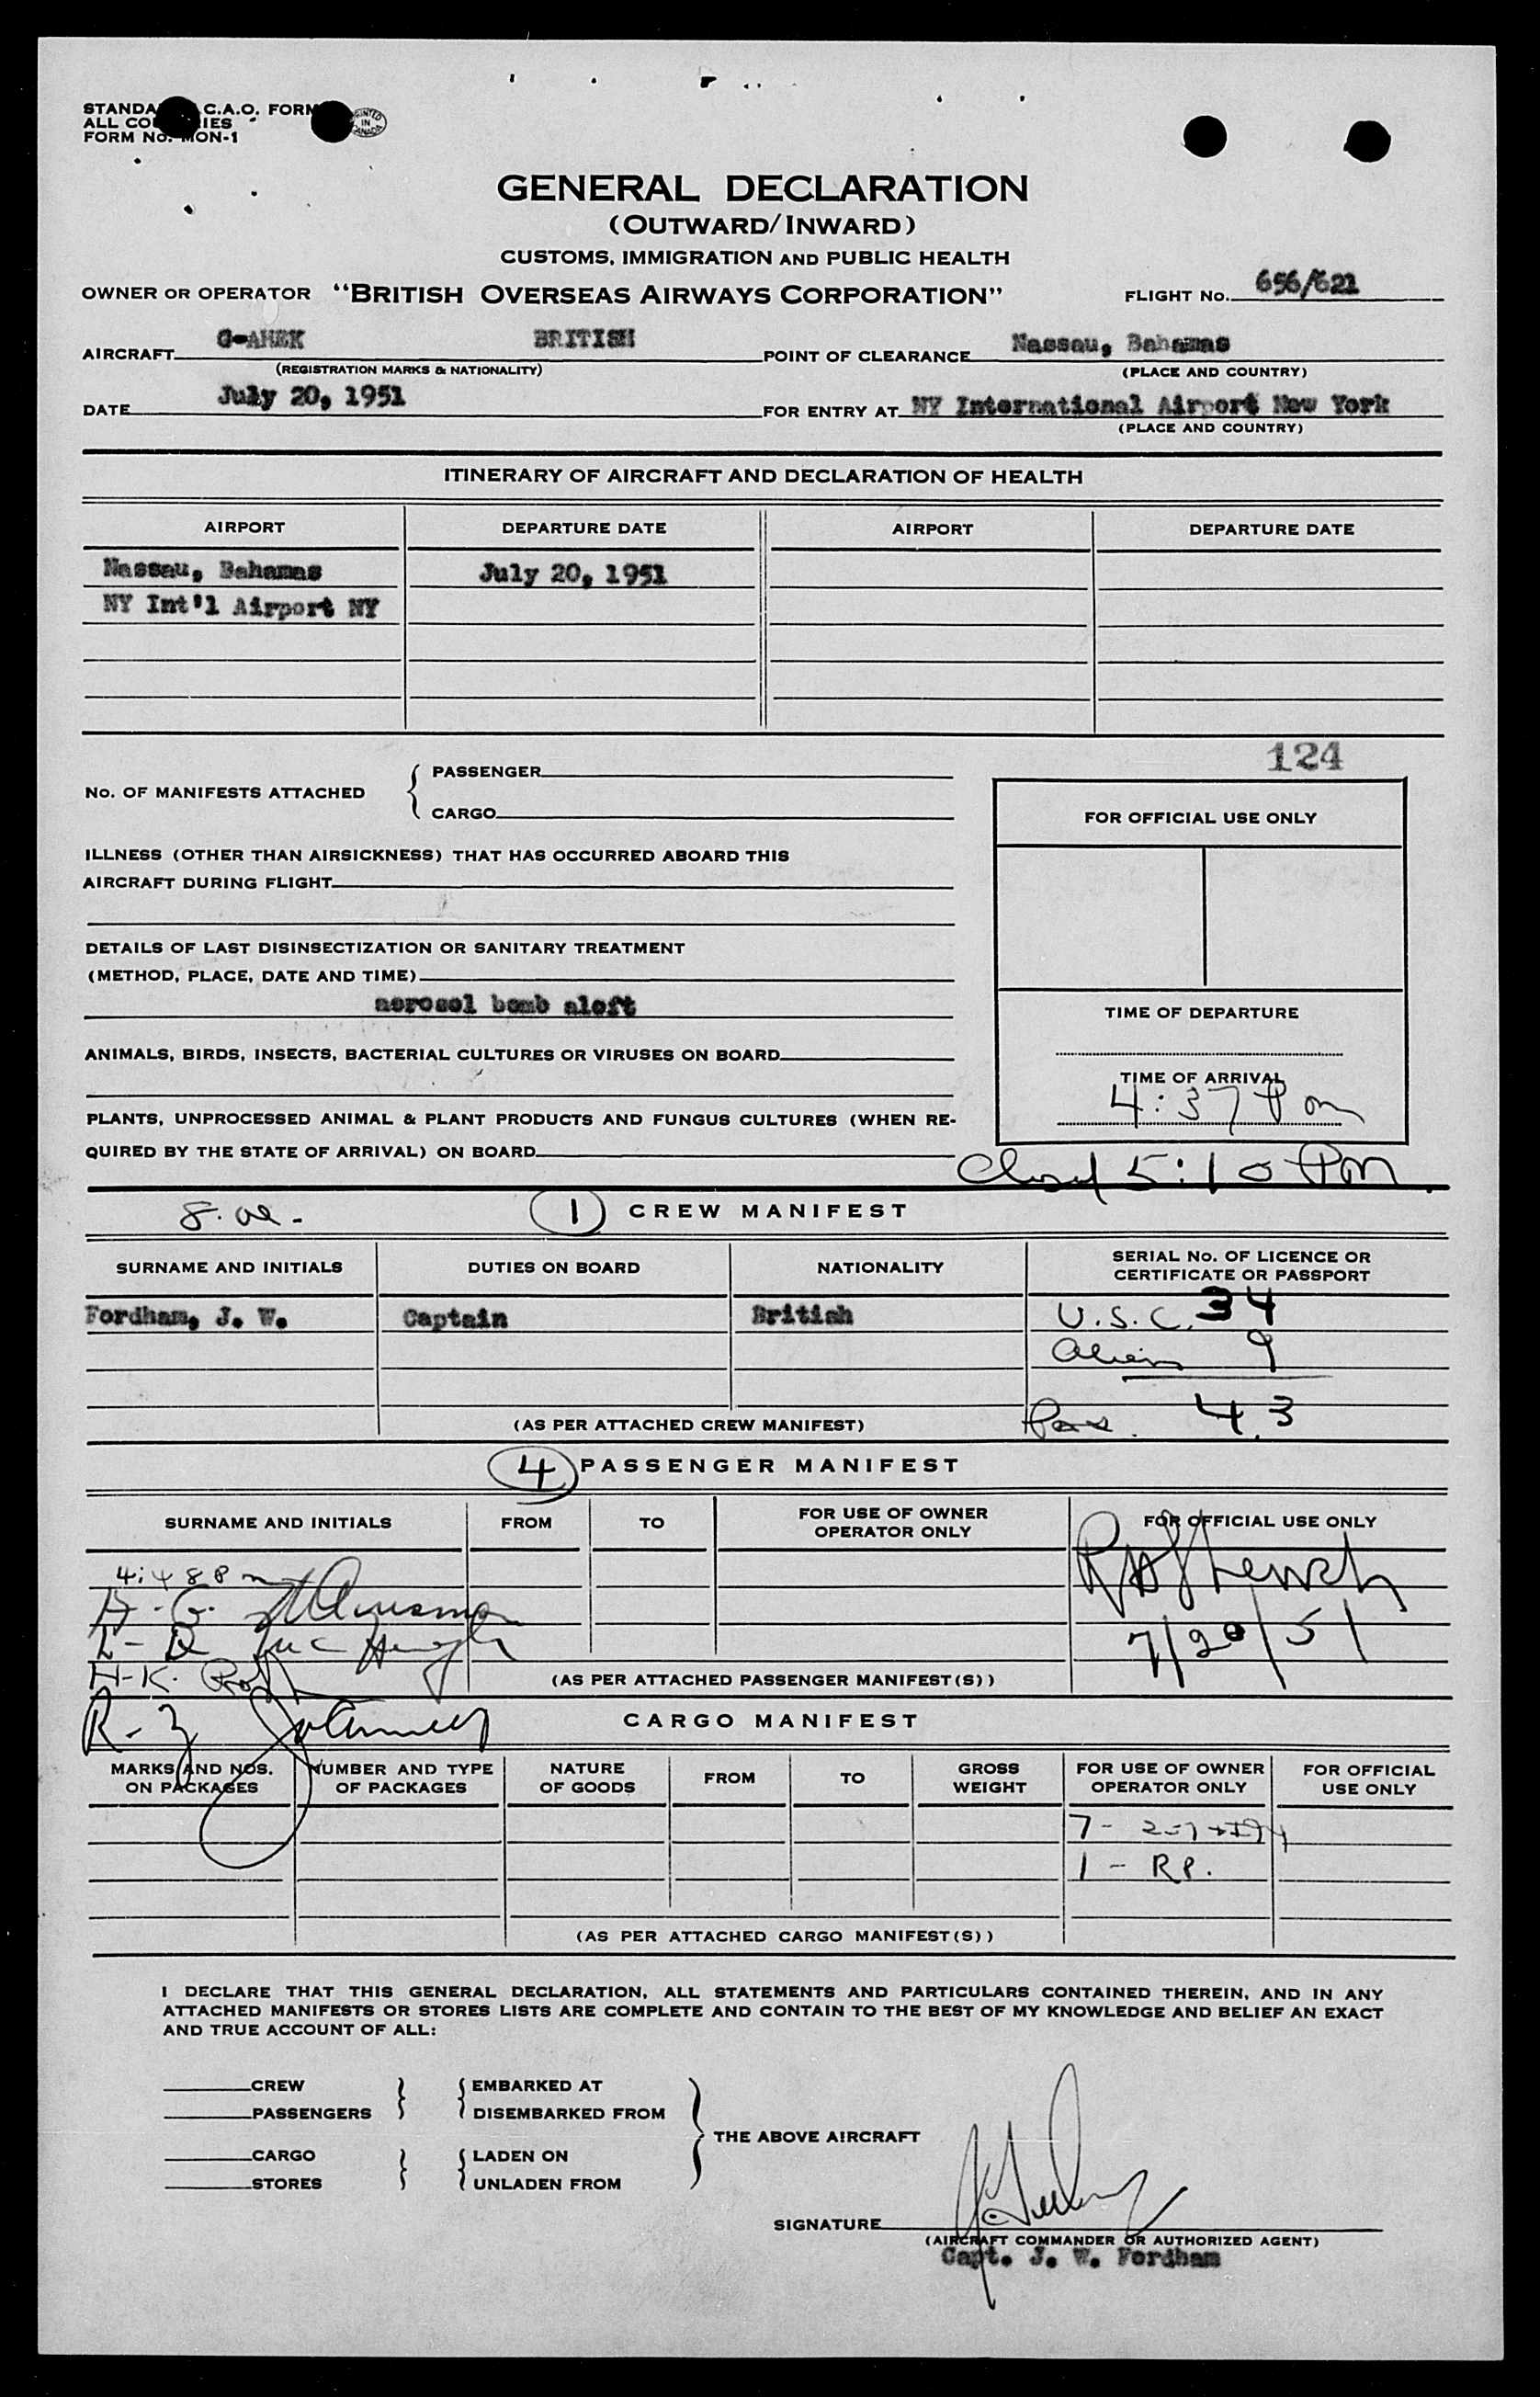 STANDA C.A.O. FORM
ALL CO IES
FORM No. MON-1
PRINTED IN CANADA
GENERAL DECLARATION
(OUTWARD/INWARD)
CUSTOMS, IMMIGRATION AND PUBLIC HEALTH
OWNER OR OPERATOR "BRITISH OVERSEAS AIRWAYS CORPORATION" FLIGHT No. 656/621
AIRCRAFT G-AHEK BRITISH POINT OF CLEARANCE Nassau, Bahamas
(REGISTRATION MARKS & NATIONALITY) (PLACE AND COUNTRY)
DATE July 20, 1951 FOR ENTRY AT NY International Airport New York
(PLACE AND COUNTRY)
ITINERARY OF AIRCRAFT AND DECLARATION OF HEALTH
AIRPORT DEPARTURE DATE AIRPORT DEPARTURE DATE
Nassau, Bahamas July 20, 1951
NY Int'l Airport NY
124
No. OF MANIFESTS ATTACHED { PASSENGER
CARGO
FOR OFFICIAL USE ONLY
ILLNESS (OTHER THAN AIRSICKNESS) THAT HAS OCCURRED ABOARD THIS
AIRCRAFT DURING FLIGHT
DETAILS OF LAST DISINSECTIZATION OR SANITARY TREATMENT
(METHOD, PLACE, DATE AND TIME)
aerosol bomb aloft
TIME OF DEPARTURE
ANIMALS, BIRDS, INSECTS, BACTERIAL CULTURES OR VIRUSES ON BOARD
TIME OF ARRIVAL
4:37 Pm
PLANTS, UNPROCESSED ANIMAL & PLANT PRODUCTS AND FUNGUS CULTURES (WHEN RE-
QUIRED BY THE STATE OF ARRIVAL) ON BOARD
Closed 5:10 PM
1 CREW MANIFEST
SURNAME AND INITIALS DUTIES ON BOARD NATIONALITY SERIAL No. OF LICENCE OR
CERTIFICATE OR PASSPORT
Fordham, J. W. Captain British U.S.C. 34
Alien 9
(AS PER ATTACHED CREW MANIFEST) Pax. 43
4 PASSENGER MANIFEST
SURNAME AND INITIALS FROM TO FOR USE OF OWNER
OPERATOR ONLY FOR OFFICIAL USE ONLY
4:48 Pm
7/20/51
(AS PER ATTACHED PASSENGER MANIFEST(S))
CARGO MANIFEST
MARKS AND NOS.
ON PACKAGES NUMBER AND TYPE
OF PACKAGES NATURE
OF GOODS FROM TO GROSS
WEIGHT FOR USE OF OWNER
OPERATOR ONLY FOR OFFICIAL
USE ONLY
1 - RP.
(AS PER ATTACHED CARGO MANIFEST(S))
I DECLARE THAT THIS GENERAL DECLARATION, ALL STATEMENTS AND PARTICULARS CONTAINED THEREIN, AND IN ANY
ATTACHED MANIFESTS OR STORES LISTS ARE COMPLETE AND CONTAIN TO THE BEST OF MY KNOWLEDGE AND BELIEF AN EXACT
AND TRUE ACCOUNT OF ALL:
CREW } { EMBARKED AT
PASSENGERS DISEMBARKED FROM
THE ABOVE AIRCRAFT
CARGO } { LADEN ON
STORES UNLADEN FROM
SIGNATURE
(AIRCRAFT COMMANDER OR AUTHORIZED AGENT)
Capt. J. W. Fordham